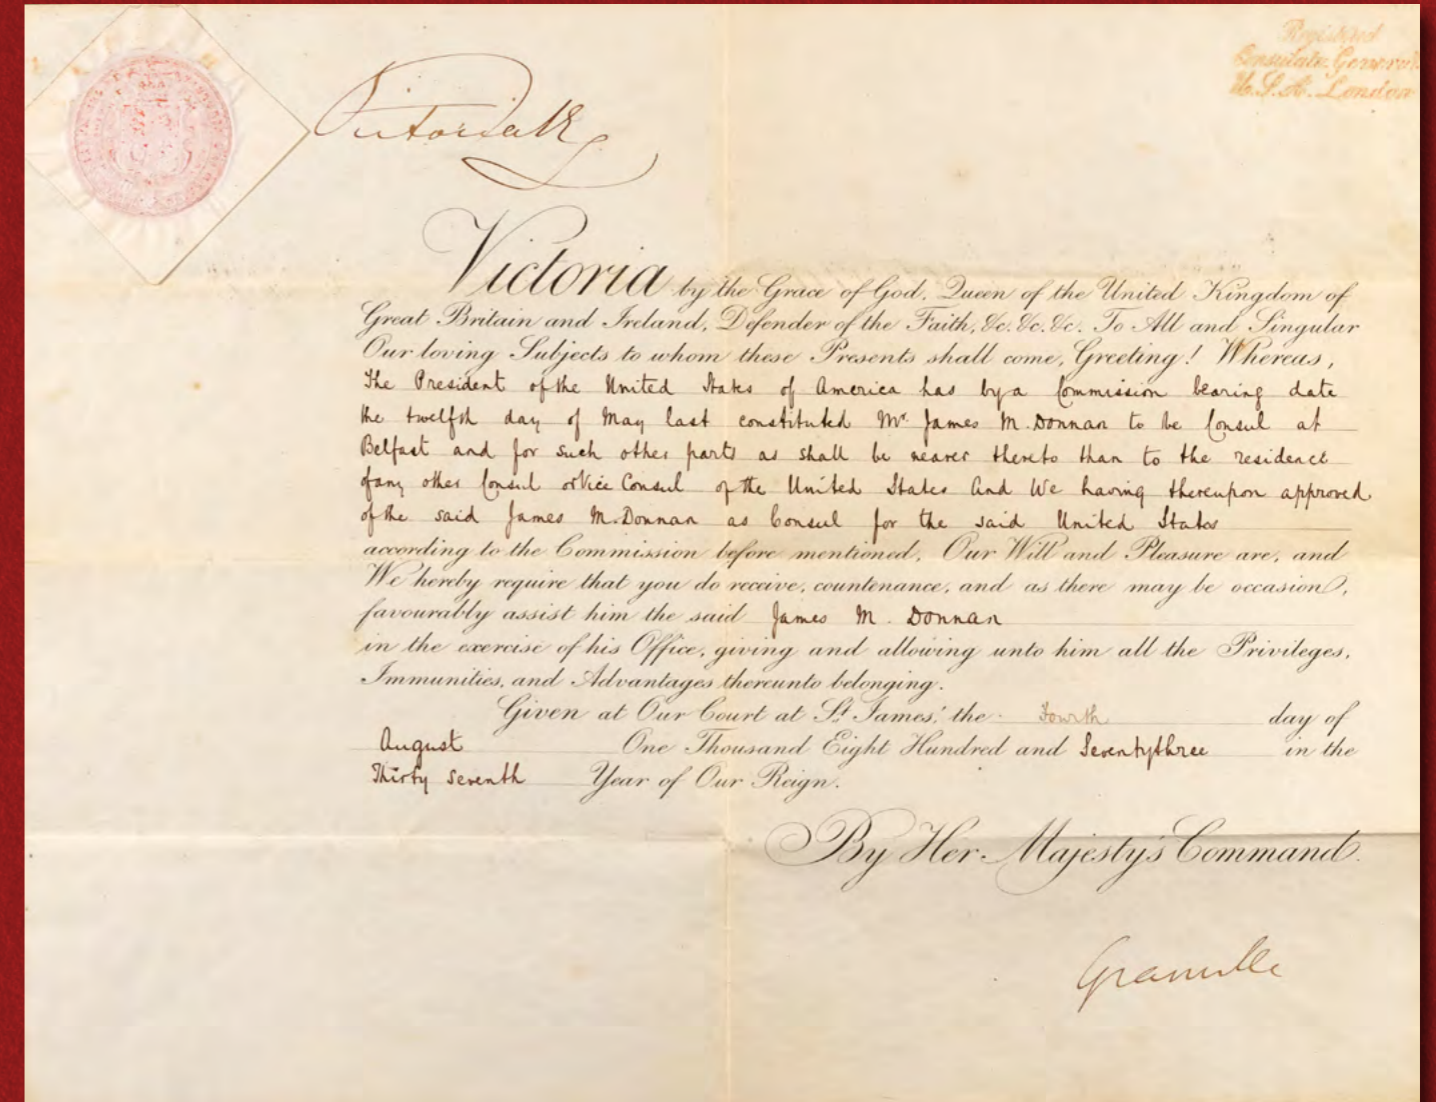 Victoria R
Registered
Consulate General
U.S.A. London
Victoria by the Grace of God, Queen of the United Kingdom of
Great Britain and Ireland, Defender of the Faith, &c. &c. &c. To All and Singular
Our loving Subjects to whom these Presents shall come, Greeting! Whereas,
The President of the United States of America has by a Commission bearing date
the twelfth day of May last constituted Mr. James M. Donnan to be Consul at
Belfast and for such other parts as shall be nearer thereto than to the residence
of any other Consul or Vice Consul of the United States And We having thereupon approved
of the said James M. Donnan as Consul for the said United States
according to the Commission before mentioned, Our Will and Pleasure are, and
We hereby require that you do receive, countenance, and as there may be occasion,
favourably assist him the said James M. Donnan
in the exercise of his Office, giving and allowing unto him all the Privileges,
Immunities, and Advantages thereunto belonging.
Given at Our Court at St. James', the Fourth day of
August One Thousand Eight Hundred and Seventythree in the
Thirty seventh Year of Our Reign.
By Her Majesty's Command.
Granville